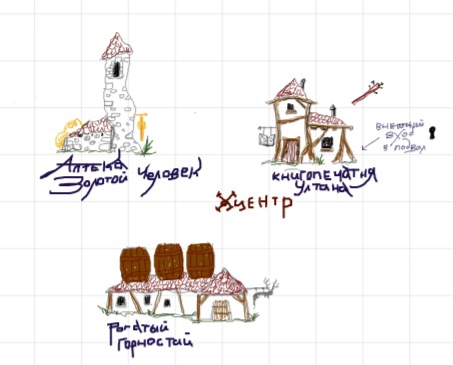 Аптека
Золотой человек
книгопечатня
Ултана
внешний
вход
в подвал
центр
Рогатый
горностай